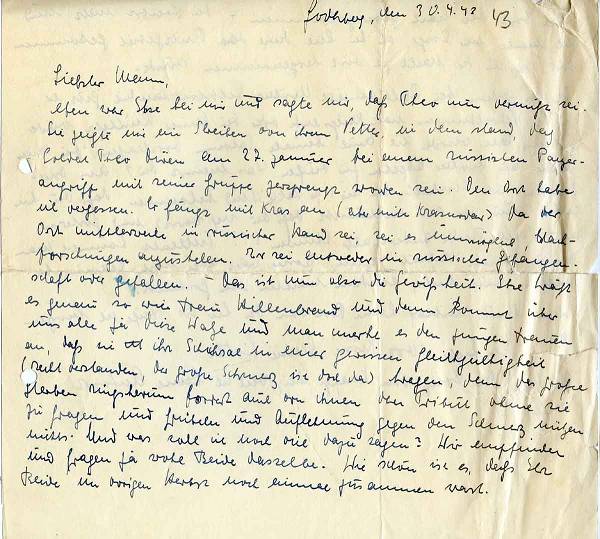 Godesberg, den 30.4.42 43
Liebster Mann,
eben war Else bei mir und sagte mir, daß Theo nun vermißt sei.
Sie zeigte mir ein Schreiben von ihrem Vetter, in dem stand, daß
Soldat Theo Düren am 27. Januar bei einem russischen Panzer-
angriff mit seiner Gruppe zersprengt worden sei. Den Ort habe
ich vergessen. Er fängt mit Kras an (also nicht Krasnodar) Da der
Ort mittlerweile in russischer Hand sei, sei es unmöglich, Nach-
forschungen anzustellen. Er sei entweder in russischer Gefangen-
schaft oder gefallen. – Das ist nun also die Gewißheit. Else trägt
es genau so wie Frau Hillenbrand und dann kommt über
uns alle ja diese Woge und man merkt es den jungen Frauen
an, daß sie ihr Schicksal in einer gewissen Gleichgültigkeit
(recht verstanden, der große Schmerz ist da) tragen, denn das große
Sterben ringsherum fordert auch von ihnen den Tribut, ohne sie
zu fragen und Grübeln und Auflehnung gegen den Schmerz nützen
nichts. Und was soll ich noch viel dazu sagen? Wir empfinden
und fragen ja wohl Beide dasselbe. Wie schön ist es, daß Ihr
Beide im vorigen Herbst noch einmal zusammen wart.